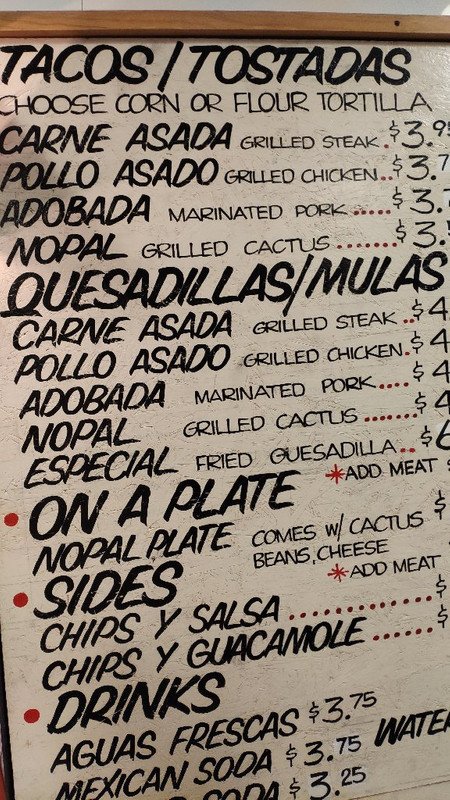 TACOS/TOSTADAS
CHOOSE CORN OR FLOUR TORTILLA
CARNE ASADA GRILLED STEAK . $3.95
POLLO ASADO GRILLED CHICKEN .. $3.7
ADOBADA MARINATED PORK ...... $3.
NOPAL GRILLED CACTUS ........ $3.
QUESADILLAS/MULAS
CARNE ASADA GRILLED STEAK .. $4
POLLO ASADO GRILLED CHICKEN . $4
ADOBADA MARINATED PORK .... $4
NOPAL GRILLED CACTUS ....... $4
ESPECIAL FRIED QUESADILLA .. $6
*ADD MEAT $
• ON A PLATE
NOPAL PLATE COMES W/ CACTUS $
BEANS, CHEESE
*ADD MEAT
• SIDES
CHIPS Y SALSA ............. $
CHIPS Y GUACAMOLE ...... $
• DRINKS
AGUAS FRESCAS $3.75
MEXICAN SODA $3.75 WATER
SODA $3.25